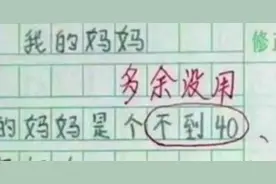 我的妈妈
修
多余没用
的妈妈是个不到40、